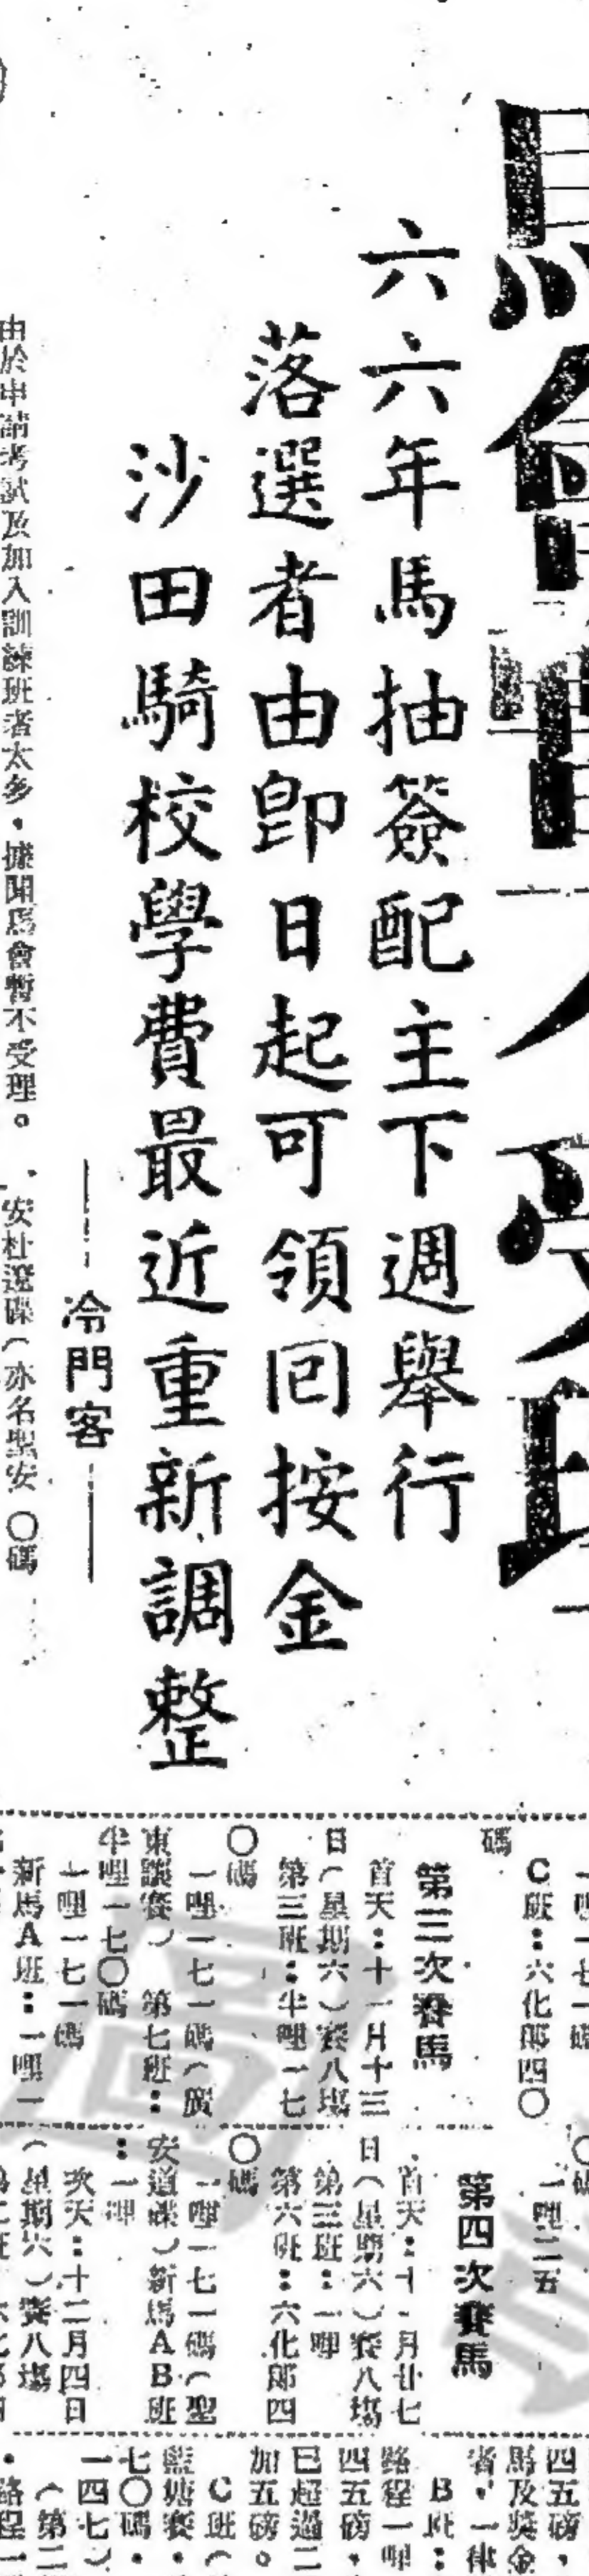 六六年馬抽簽配主下週舉行
落選者由卽日起可領回按金
沙田騎校學費最近重新調整
冷門客
由於申請考試及加入訓練班者太多，據聞馬會暫不受理。
安杜道碟（亦名聖安
〇碼
碼
C班：六化郎四〇
第三次賽馬
首天：十一月十三
日（星期六）賽八場
第三班：半哩一七
〇碼
一哩一七一碼（廣
東讓賽）第七班：
半哩一七〇碼
一哩一七一碼
新馬A班：一哩一
一哩二五
第四次賽馬
首天：十一月廿七
日（星期六）賽八場
第三班：一哩
第六班：六化郎四
〇碼
一哩一七一碼（聖
安道碟）新馬AB班
：一哩
次天：十二月四日
（星期六）賽八場
四五磅，
馬及獎金
者，一律
B班：
路程一哩
四五磅，
已超過二
加五磅。
C班（
藍塘賽，
七〇碼，
一四七）
（第二